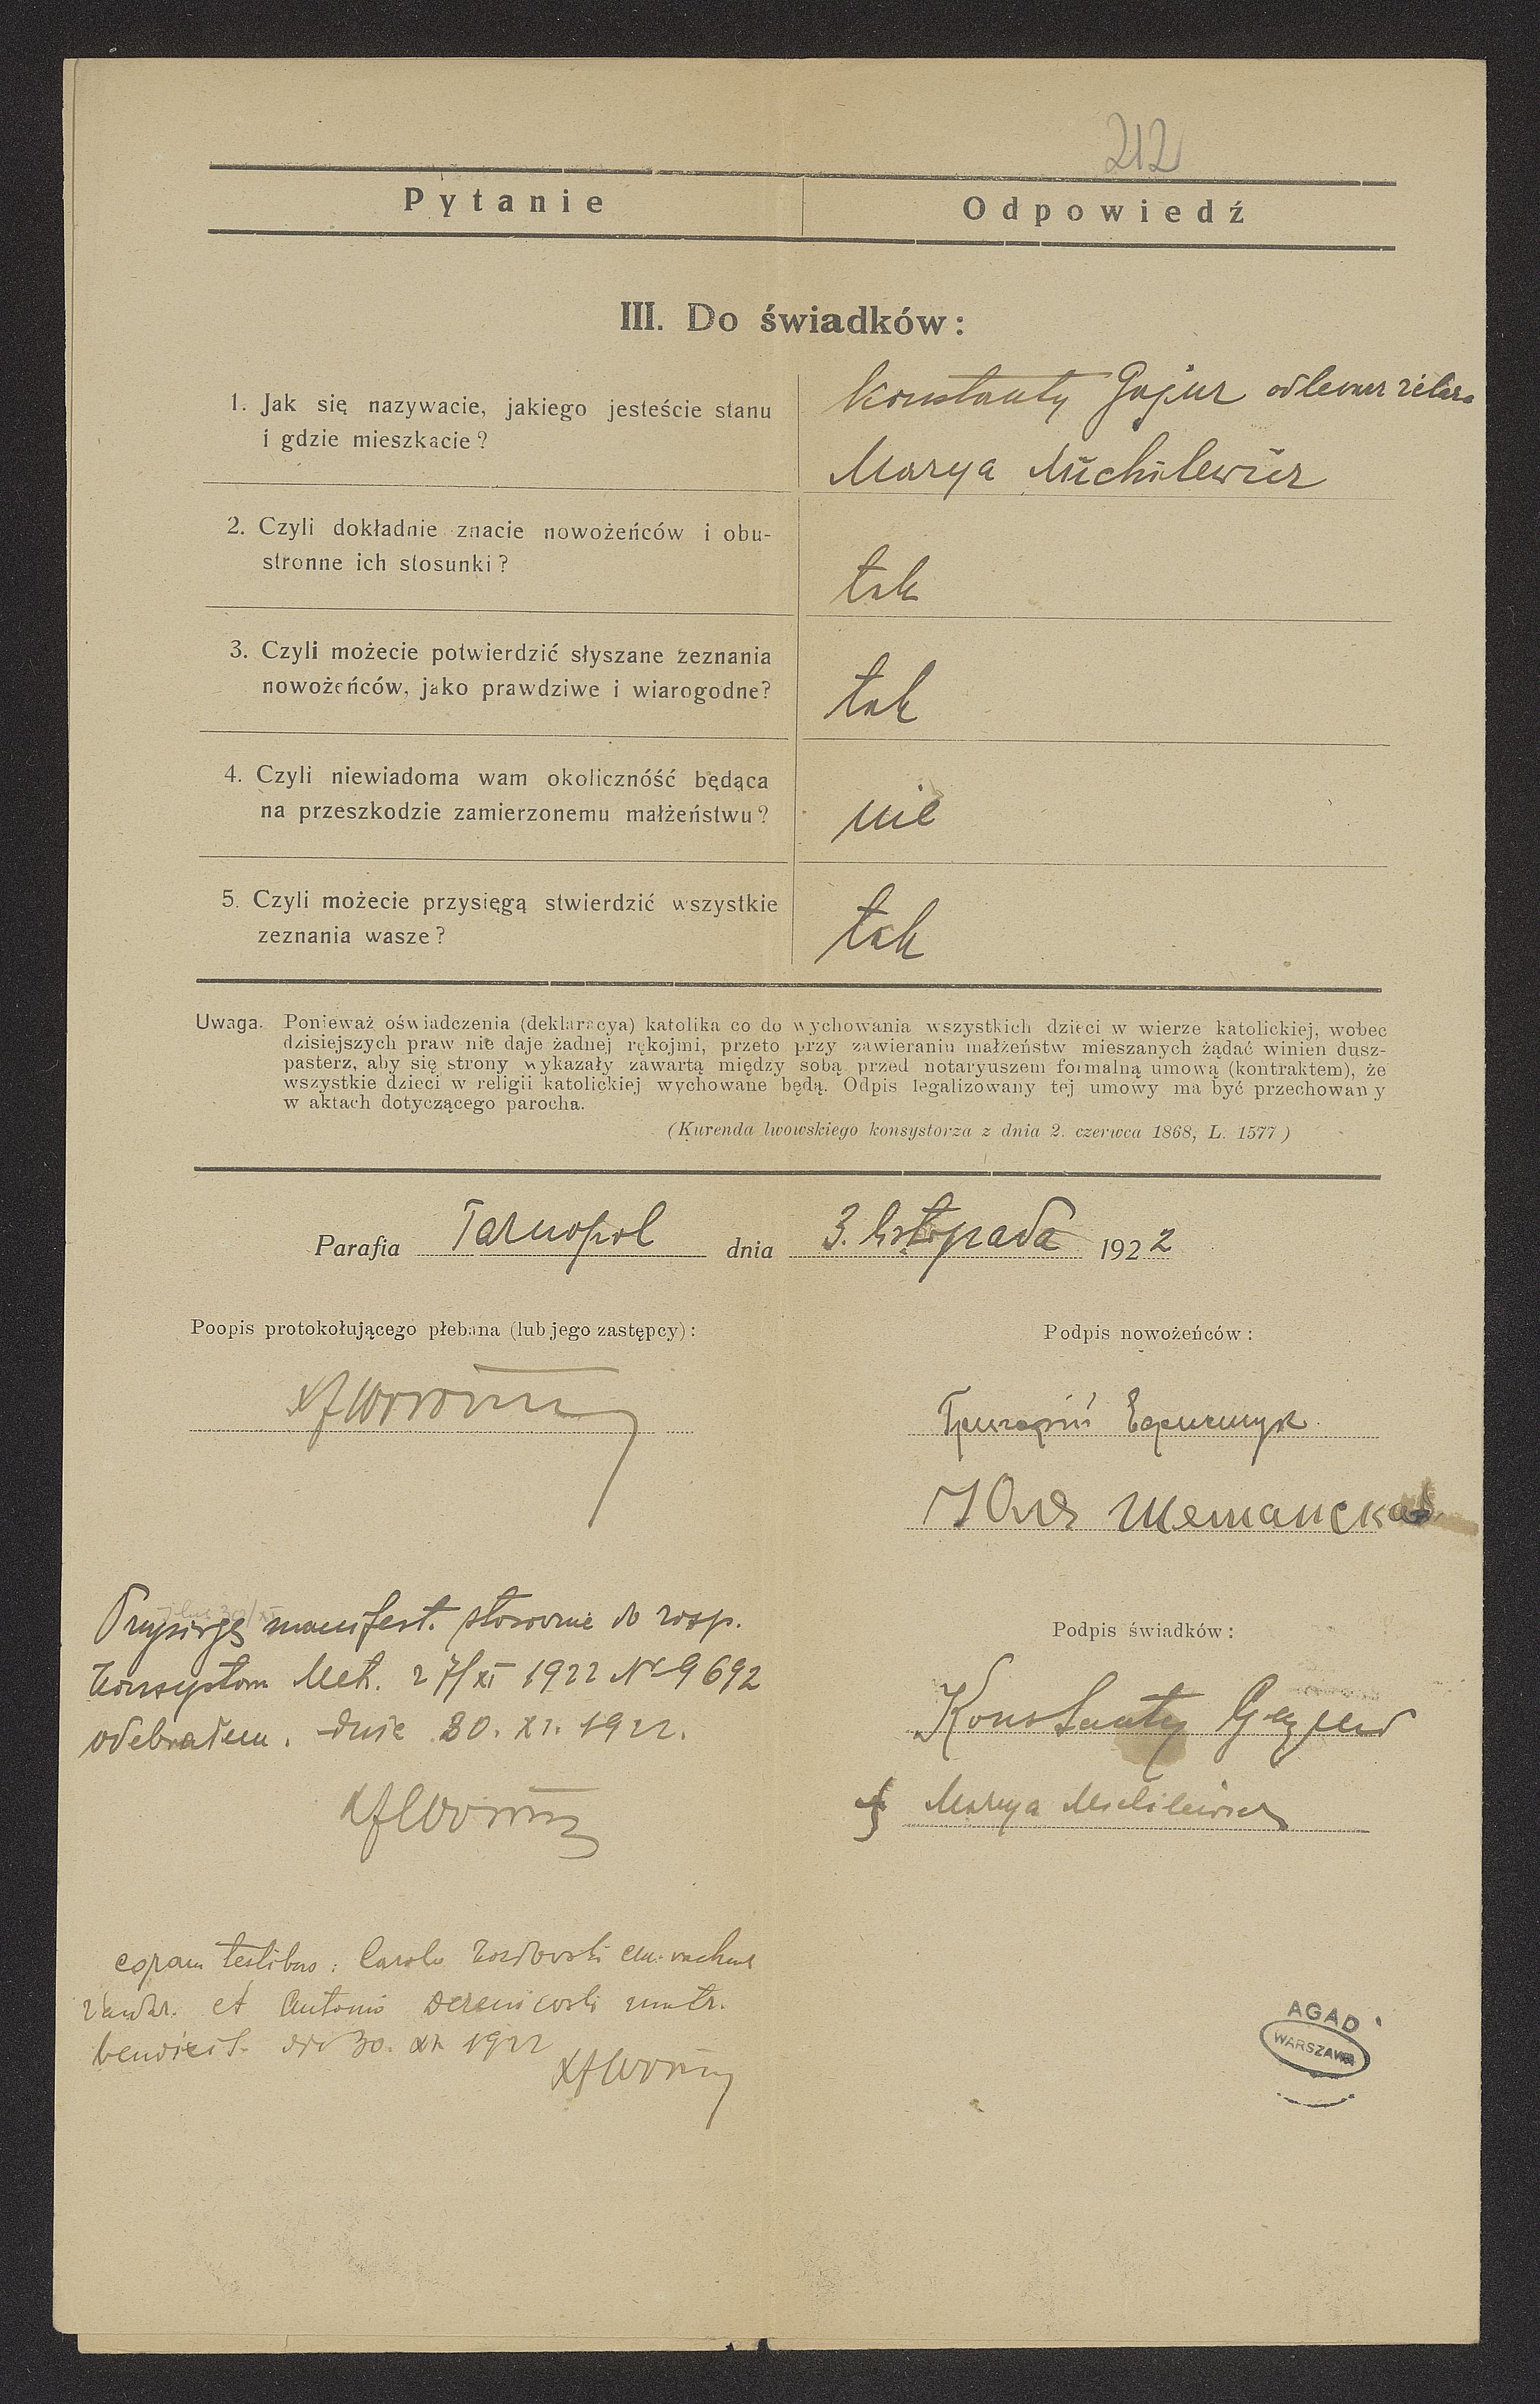 212
Pytanie
Odpowiedź
III. Do świadków:
1. Jak się nazywacie, jakiego jesteście stanu
i gdzie mieszkacie?
Konstanty Gajur
Marya Michilewicz
2. Czyli dokładnie znacie nowożeńców i obu-
stronne ich stosunki?
tak
3. Czyli możecie potwierdzić słyszane zeznania
nowożeńców, jako prawdziwe i wiarogodne?
tak
4. Czyli niewiadoma wam okolicznóść będąca
na przeszkodzie zamierzonemu małżeństwu?
nie
5. Czyli możecie przysięgą stwierdzić wszystkie
zeznania wasze?
tak
Uwaga. Ponieważ oświadczenia (deklaracya) katolika co do wychowania wszystkich dzieci w wierze katolickiej, wobec
dzisiejszych praw nie daje żadnej rękojmi, przeto przy zawieraniu małżeństw mieszanych żądać winien dusz-
pasterz, aby się strony wykazały zawartą między sobą przed notaryuszem formalną umową (kontraktem), że
wszystkie dzieci w religii katolickiej wychowane będą. Odpis legalizowany tej umowy ma być przechowany
w aktach dotyczącego parocha.
(Kurenda lwowskiego konsystorza z dnia 2. czerwca 1868, L. 1577)
Parafia Tarnopol dnia 3. listopada 1922
Poopis protokołującego plebana (lub jego zastępcy):
Podpis nowożeńców:
Przysięgę manifest. stosownie do rozp.
Konsystorz Met. z 7/XI 1922 Nr 9692
odebrałem. dnia 30. XI. 1922.
Podpis świadków:
Konstanty
Marya Michilewicz
coram testibus: Carolo
et Antonio
30. XI. 1922
AGAD
WARSZAWA